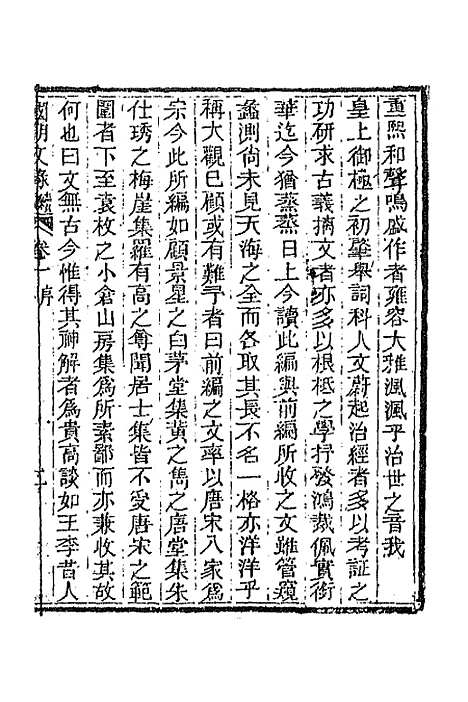 重熙和聲鳴盛作者雍容大雅渢渢乎治世之音我
皇上御極之初肇舉詞科人文蔚起治經者多以考証之
功研求古義摛文者亦多以根柢之學抒發鴻裁佩實銜
華迄今猶蒸蒸日上今讀此編與前編所收之文雖管窺
蠡測尚未見天海之全而各取其長不名一格亦洋洋乎
稱大觀已顧或有難予者曰前編之文率以唐宋八家為
宗今此所編如顧景星之白茅堂集黄之雋之唐堂集朱
仕琇之梅崖集羅有高之尊聞居士集皆不受唐宋之範
圍者下至袁枚之小倉山房集為所素鄙而亦兼收其故
何也曰文無古今惟得其神解者為貴高談如王李昔人
國朝文錄續 卷一序